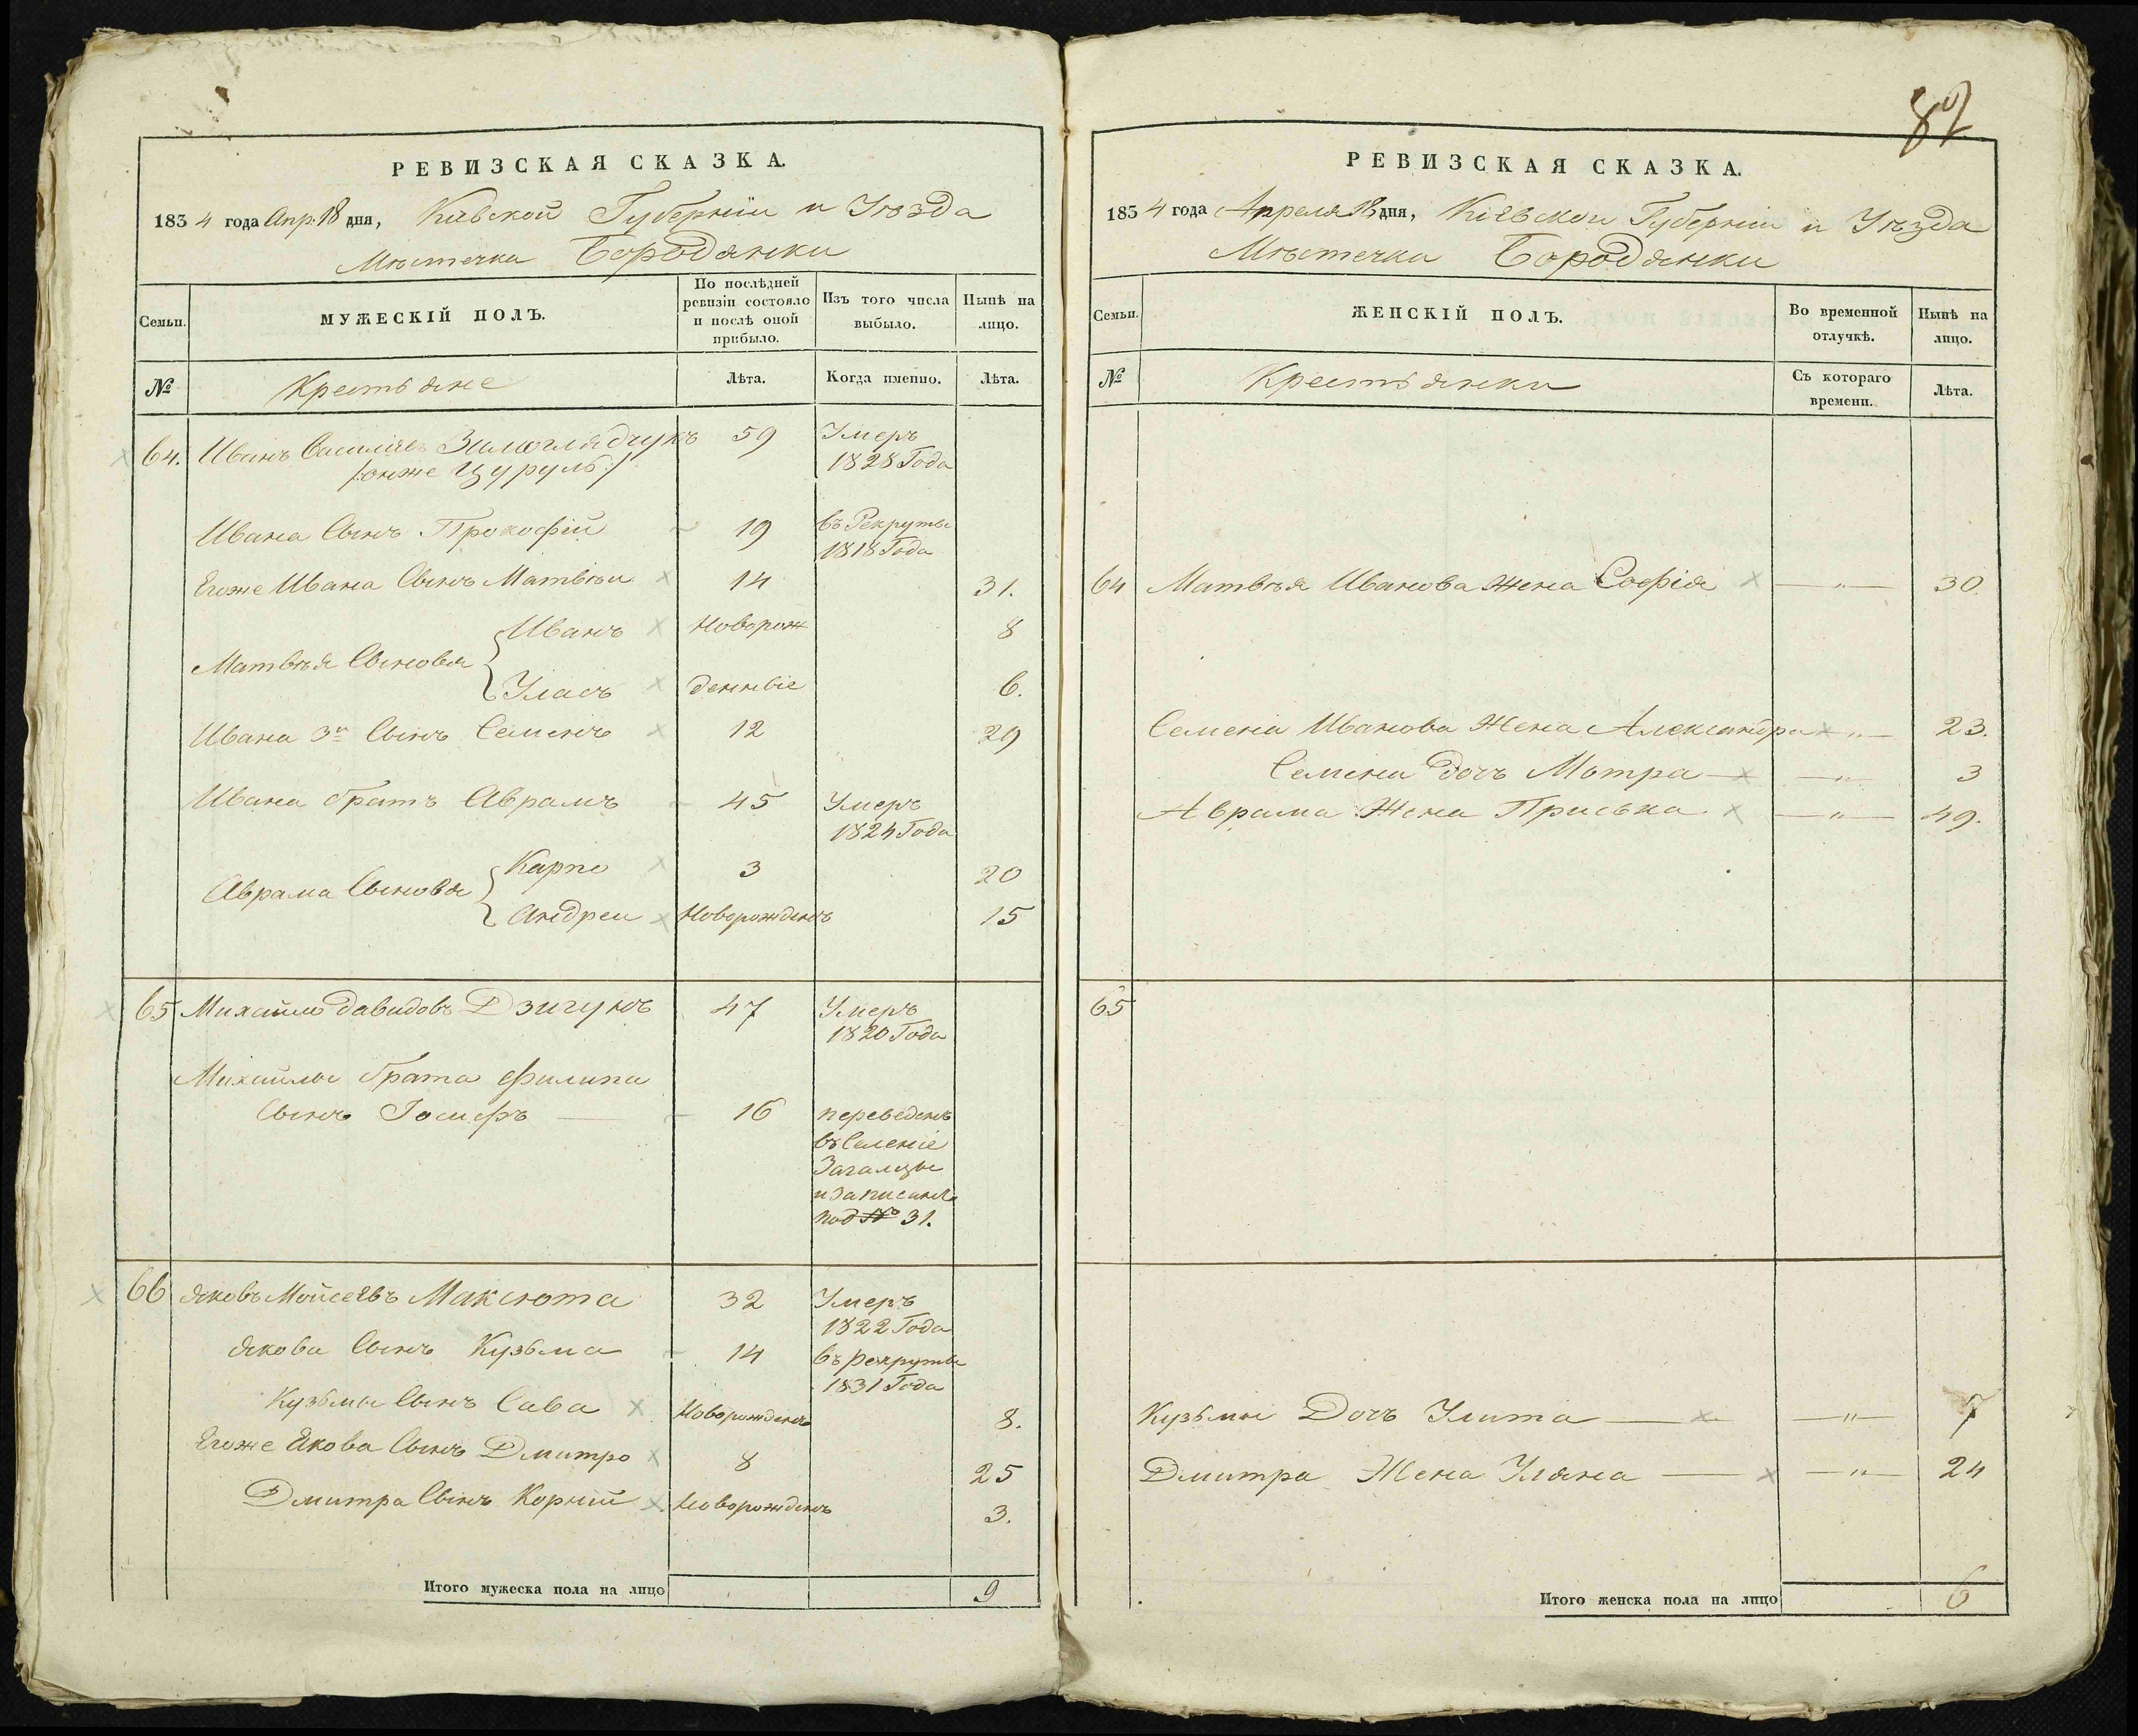 82
РЕВИЗСКАЯ СКАЗКА.
183 4 года Апр. 18 дня, Кіевской Губерніи и Уѣзда
Мѣстечка Бородянки
Семьи.
МУЖЕСКІЙ ПОЛЪ.
По послѣдней ревизіи состояло и послѣ оной прибыло.
Изъ того числа выбыло.
Нынѣ на лицо.
№
Крестьяне
Лѣта.
Когда именно.
Лѣта.
64. Иванъ Василіевъ 59 Умеръ
/:онже Цуруль:/ 1828 Года
Ивана Сынъ Прокофій 19 въ Рекруты
1818 Года
Егоже Ивана Сынъ Матвѣи 14 31.
Иванъ Новорож 8
Матвѣя Сыновья
Уласъ денныіе 6.
Ивана 3й Сынъ Семенъ 12 29
Ивана братъ Аврамъ 45 Умеръ
1824 Года
Карпо 3 20
Аврама Сыновья
Андреи Новорожденъ 15
65 Михайло Давидовъ Дзигунъ 47 Умеръ
1820 Года
Михайлы брата Филипа
Сынъ Іосифъ 16 переведенъ
въ Селеніе
Загальцы
и записанъ
под № 31.
66 Яковъ Мойсеевъ Максюта 32 Умеръ
1822 Года
Якова Сынъ Кузьма 14 въ рекруты
1831 Года
Кузьмы Сынъ Сава Новорожденъ 8.
Егоже Якова Сынъ Дмитро 8 25
Дмитра Сынъ Корній Новорожденъ 3.
Итого мужеска пола на лицо 9
РЕВИЗСКАЯ СКАЗКА.
183 4 года Апреля 18 дня, Кіевской Губерніи и Уѣзда
Мѣстечка Бородянки
Семьи.
ЖЕНСКІЙ ПОЛЪ.
Во временной отлучкѣ.
Нынѣ на лицо.
№
Крестьянки
Съ котораго времени.
Лѣта.
64 Матвѣя Иванова Жена Софія — " — 30.
Семена Иванова Жена Александра — " — 23.
Семена Дочь Мотра — " — 3
Аврама Жена Приська — " — 49.
65
Кузьмы Дочъ Улита — " — 7
Дмитра Жена Уляна — " — 24
Итого женска пола на лицо 6